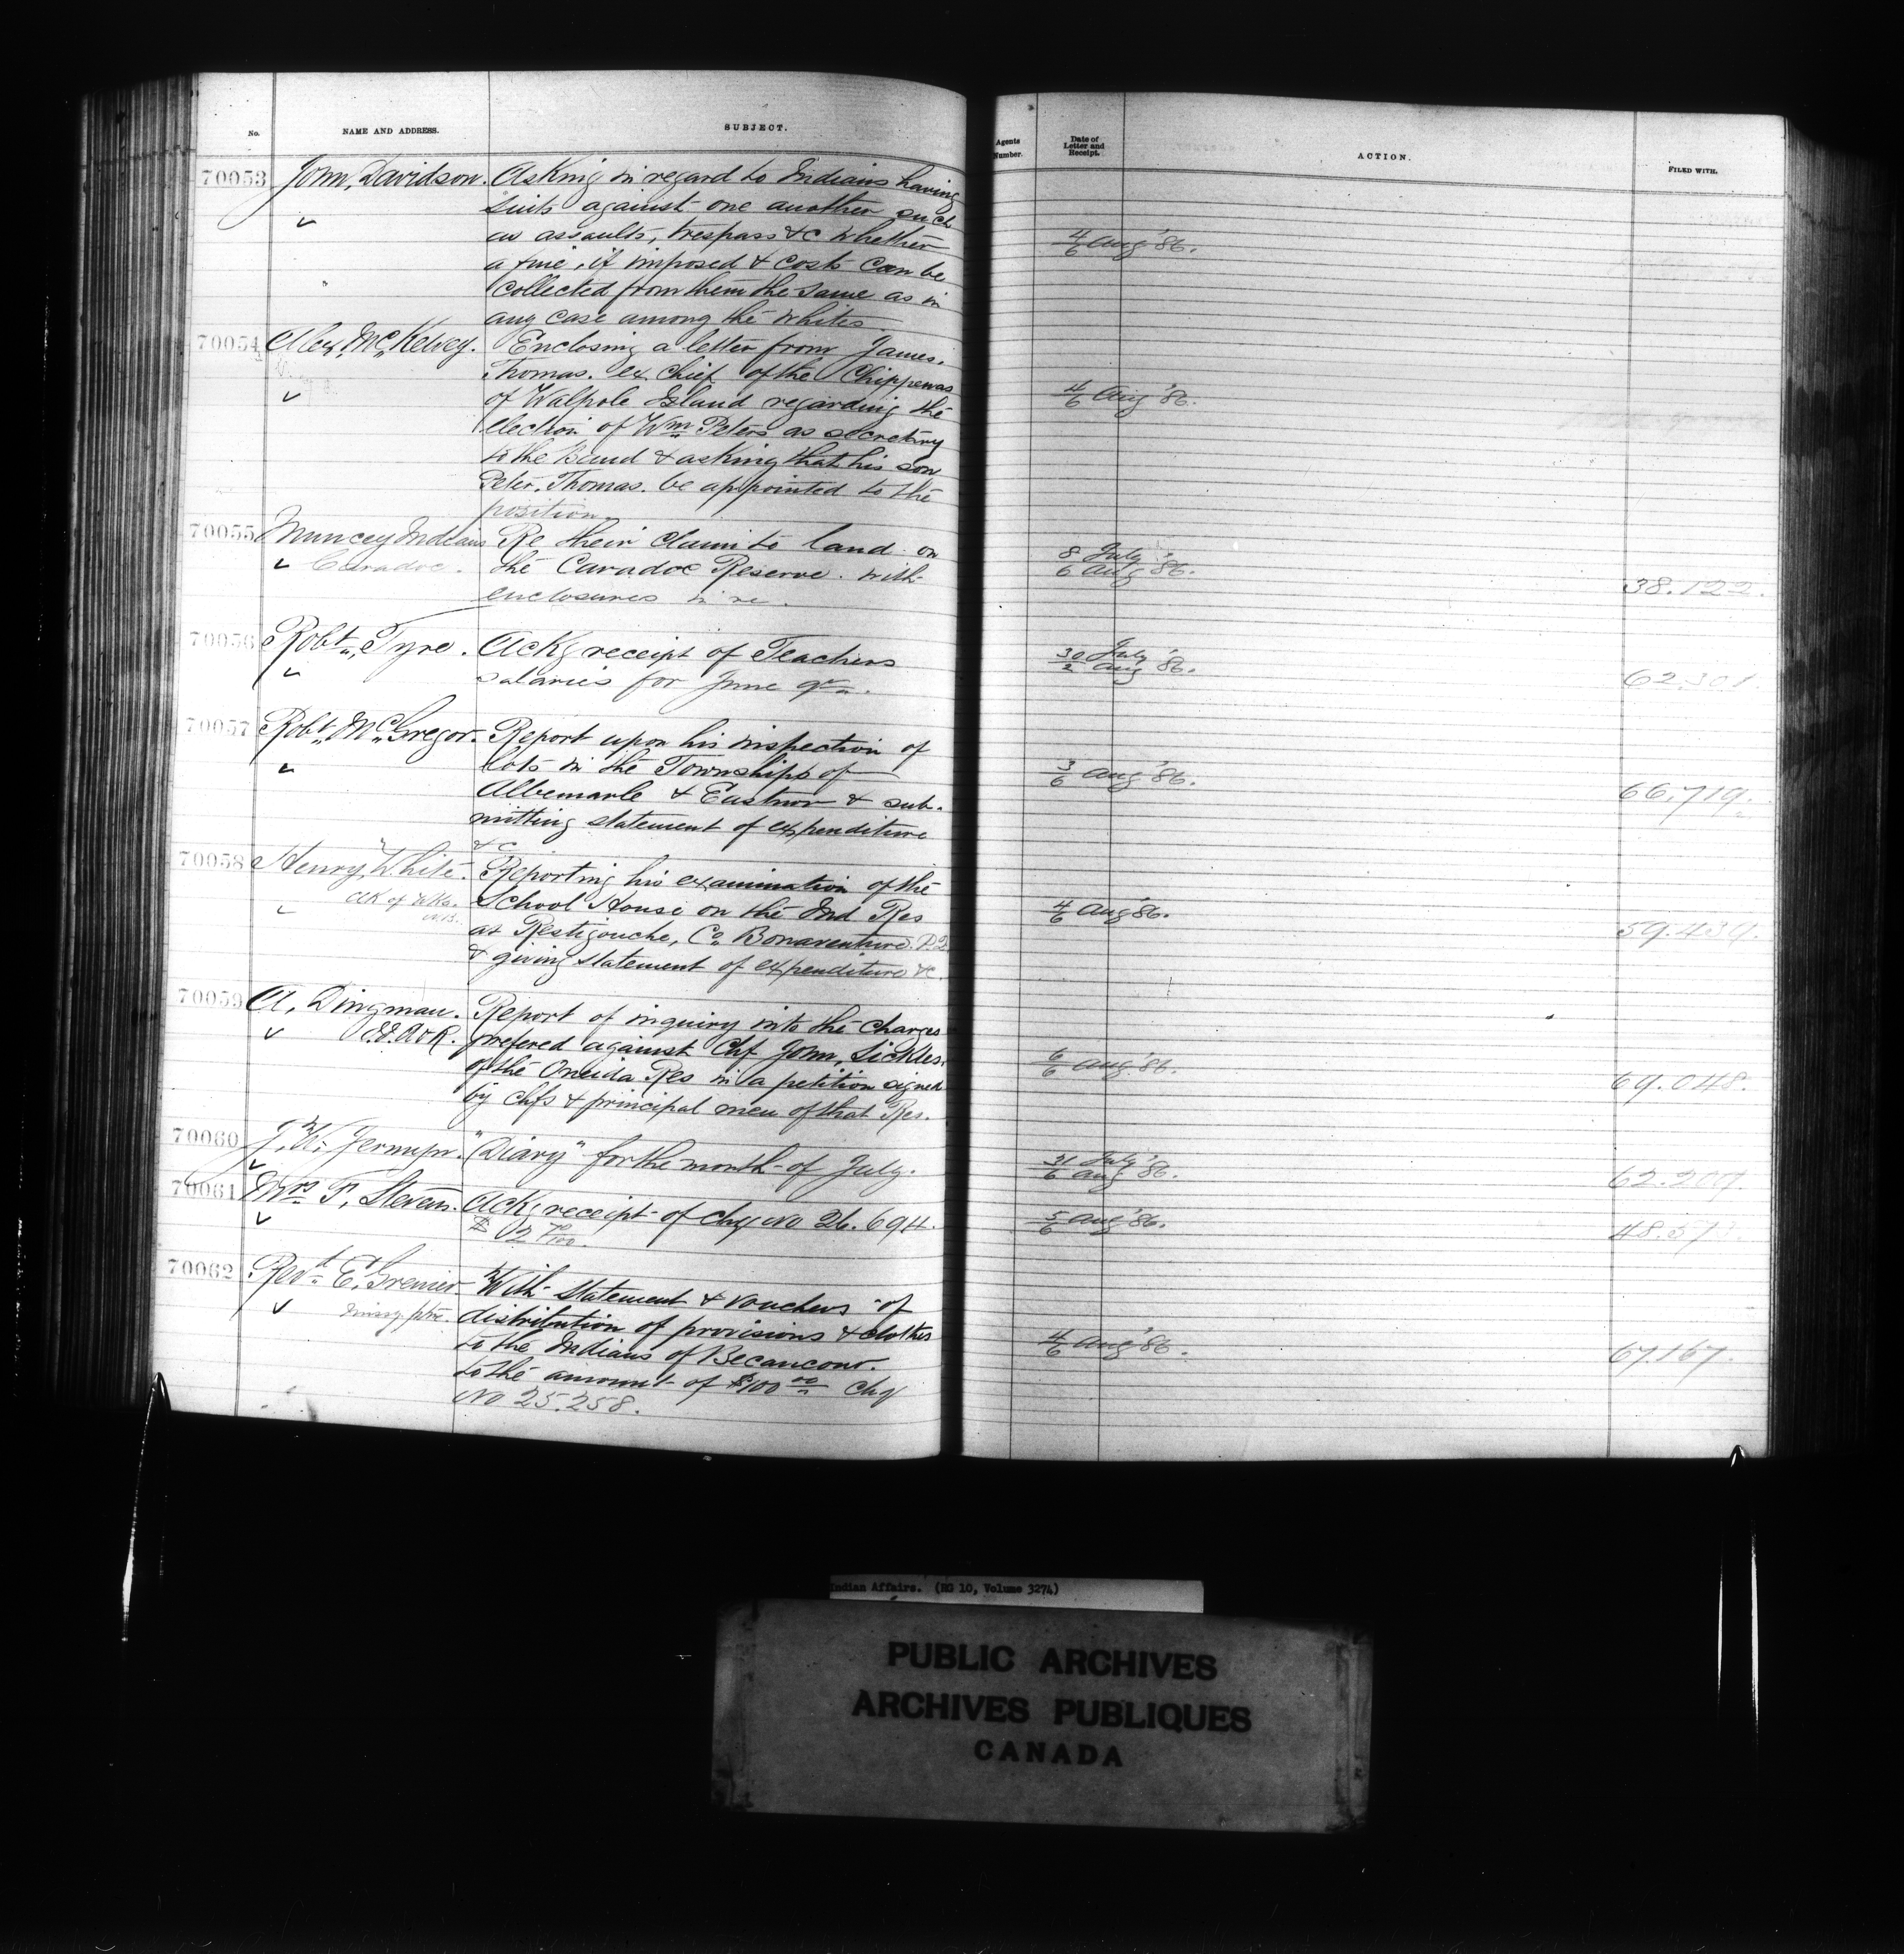 No. NAME AND ADDRESS. SUBJECT. Agents Number. Date of Letter and Receipt. ACTION. FILED WITH.
70053 John, Davidson. Asking in regard to Indians having
suits against one another such
as assaults, trespass &c whether 4/6 Aug '86.
a fine, if imposed & costs can be
collected from them the same as in
any case among the whites
70054 Alex. McKelvey. Enclosing a letter from James,
Thomas. ex Chief of the Chippewas
of Walpole Island regarding the 4/6 Aug '86.
election of Wm Peters as secretary
to the Band & asking that his son
Peter, Thomas. be appointed to the
position.
70055 Muncey Indians Re their claim to land on 8 July
Caradoc. the Caradoc Reserve. with 6 Aug '86. 38.122.
enclosures in re.
70056 Robt, Tyre. Ackg receipt of Teachers 30 July
salaries for June qr. 2 Aug '86. 62.301.
70057 Robt McGregor. Report upon his inspection of
lots in the Townships of 3/6 Aug '86. 66.719.
Albemarle & Eastnor & sub-
mitting statement of expenditure
&c
70058 Henry, White. Reporting his examination of the
School House on the Ind Res 4/6 Aug '86. 59.439.
at Restigouche, Co Bonaventure. P.Q
& giving statement of expenditure &c.
70059 A, Dingman. Report of inquiry into the charges
prefered against Chf John, Sickles,
of the Oneida Res in a petition signed 6/6 Aug '86. 69.048.
by chfs & principal men of that Res.
70060 J, W. Jermyn. "Diary" for the month of July. 31 July 6 Aug '86. 62.207.
70061 Mrs F, Stevens. Ackg receipt of chq No 26.694. 5/6 Aug '86.
$
70062 Revd E, Grenier With statement & vouchers of
Missy. distribution of provisions & clothes
to the Indians of Becancour. 4/6 Aug '86. 67.167.
to the amount of $100 00 chq
No 25.258.
Indian Affairs. (RG 10, Volume 3274)
PUBLIC ARCHIVES
ARCHIVES PUBLIQUES
CANADA